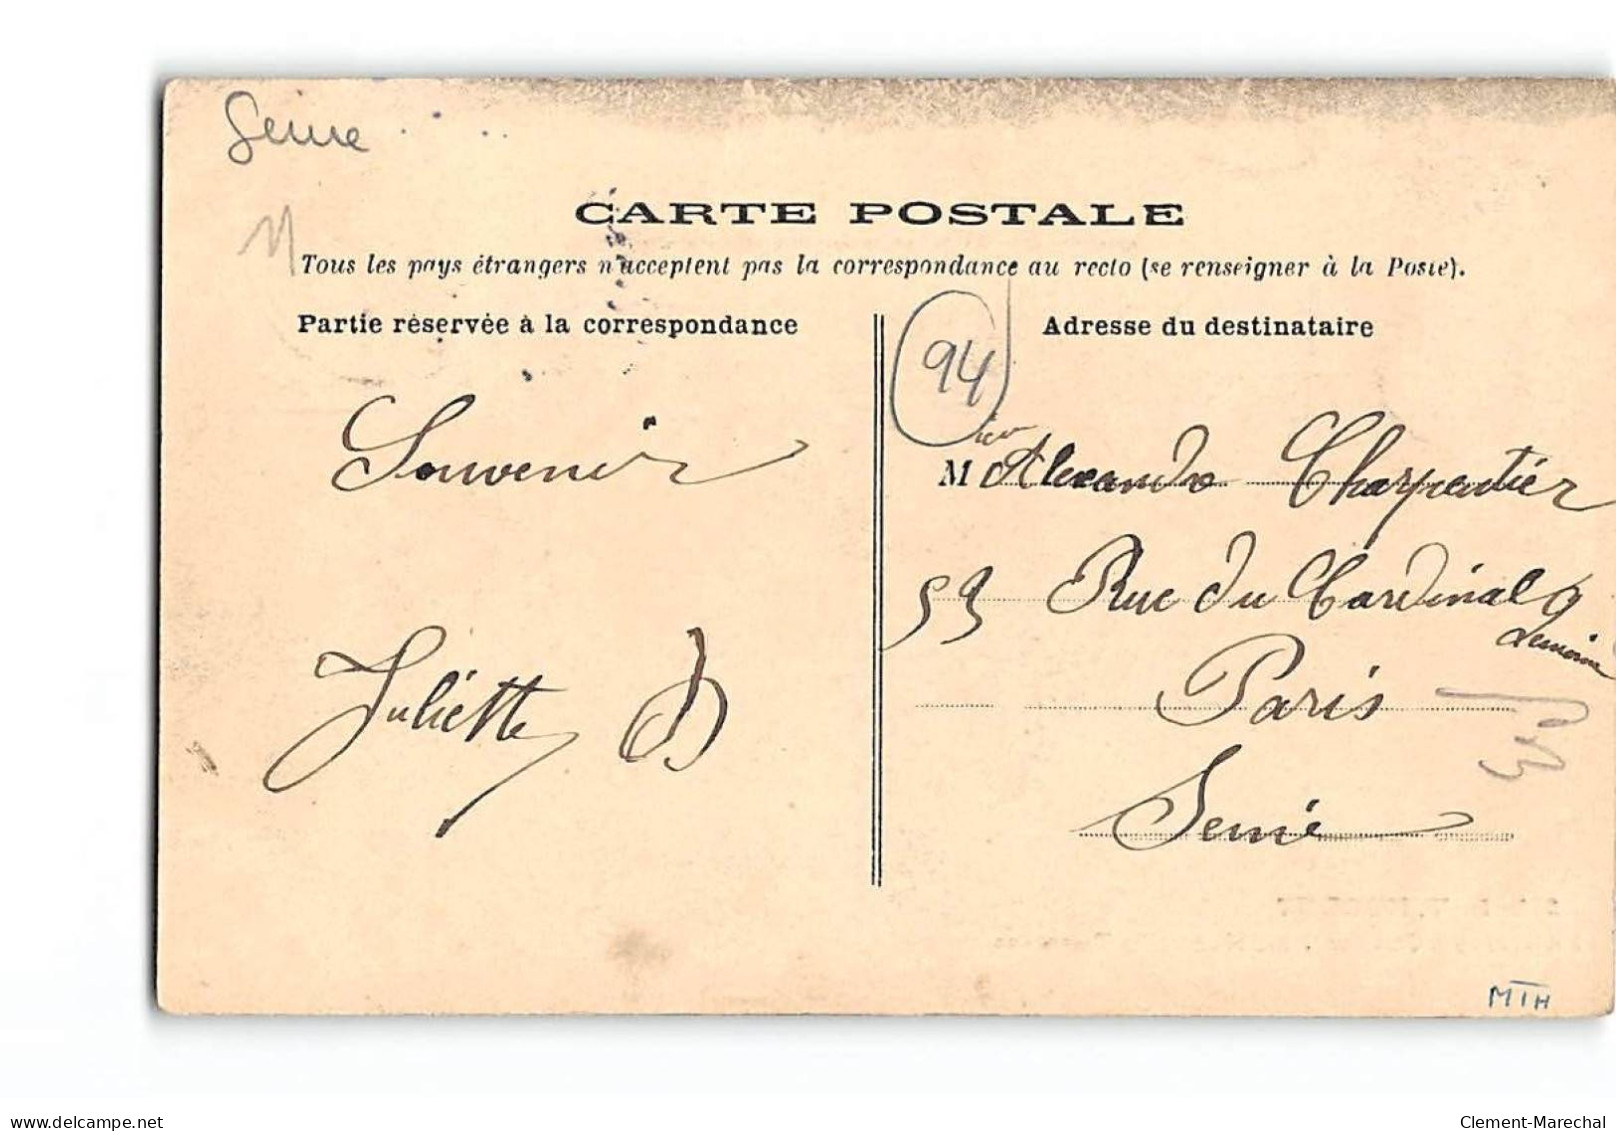 Seine
CARTE POSTALE
Tous les pays étrangers n'acceptent pas la correspondance au recto (se renseigner à la Poste).
Partie réservée à la correspondance
Adresse du destinataire
94
Souvenir
M Alexandre Charpentier
59 Rue du Cardinal
Lemoine
Juliette D
Paris
Seine
MTH
Clement-Marechal